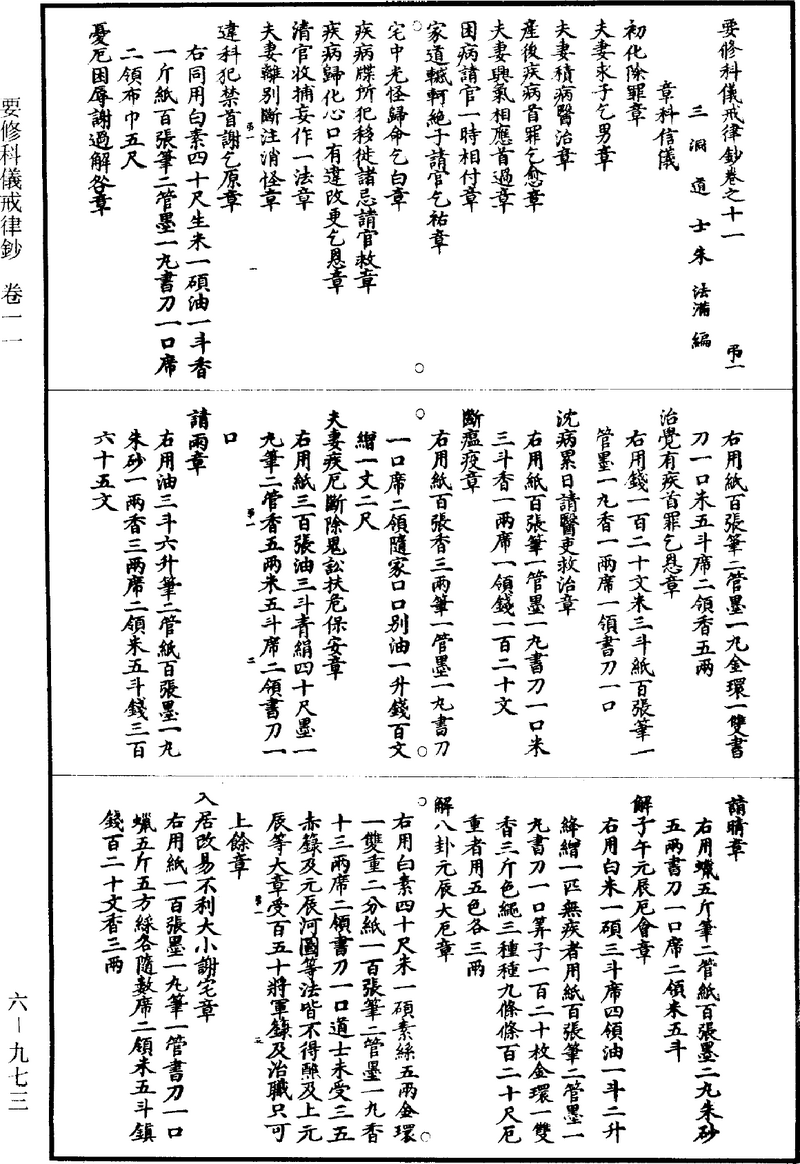 要修科儀戒律鈔卷之十一
弔一
三洞道士朱法滿編
章科信儀
初化除罪章
夫妻求子乞男章
夫妻積病醫治章
產後疾病首罪乞愈章
夫妻興氣相應首過章
困病請官一時相付章
家道轗軻絕子請官乞祐章
宅中光怪歸命乞白章
疾病牒所犯移徙諸忌請官救章
疾病歸化心口有違改更乞恩章
清官收捕妄作一法章
夫妻離別斷注消怪章
違科犯禁首謝乞原章
右同用白素四十尺生米一碩油一斗香
一斤紙百張筆二管墨一丸書刀一口席
二領布巾五尺
憂厄困辱謝過解咎章
右用紙百張筆二管墨一丸金環一雙書
刀一口米五斗席二領香五兩
治覺有疾首罪乞恩章
右用錢一百二十文米三斗紙百張筆一
管墨一丸香一兩席一領書刀一口
沈病累日請醫吏救治章
右用紙百張筆一管墨一丸書刀一口米
三斗香一兩席一領錢一百二十文
斷瘟疫章
右用紙百張香三兩筆一管墨一丸書刀
一口席二領隨家口口別油一升錢百文
繒一丈二尺
夫妻疾厄斷除鬼訟扶危保安章
右用紙三百張油三斗青絹四十尺墨一
丸筆二管香五兩米五斗席二領書刀一
口
請雨章
右用油三斗六升筆二管紙百張墨一丸
朱砂一兩香三兩席二領米五斗錢三百
六十五文
請晴章
右用蠟五斤筆二管紙百張墨二丸朱砂
五兩書刀一口席二領米五斗
解子午元辰厄會章
右用白米一碩三斗席四領油一斗二升
絳繒一匹無疾者用紙百張筆二管墨一
丸書刀一口筭子一百二十枚金環一雙
香三斤色繩三種種九條條百二十尺厄
重者用五色各三兩
解八卦元辰大厄章
右用白素四十尺米一碩素絲五兩金環
一雙重二分紙一百張筆二管墨一丸香
十三兩席二領書刀一口道士未受三五
赤籙及元辰河圖等法皆不得醮及上元
辰等大章受百五十將軍籙及治職只可
上餘章
入居改易不利大小謝宅章
右用紙一百張墨一丸筆一管書刀一口
蠟五斤五方綵各隨數席二領米五斗鎮
錢百二十文香三兩
要修科儀戒律鈔 卷一一
六－九七三